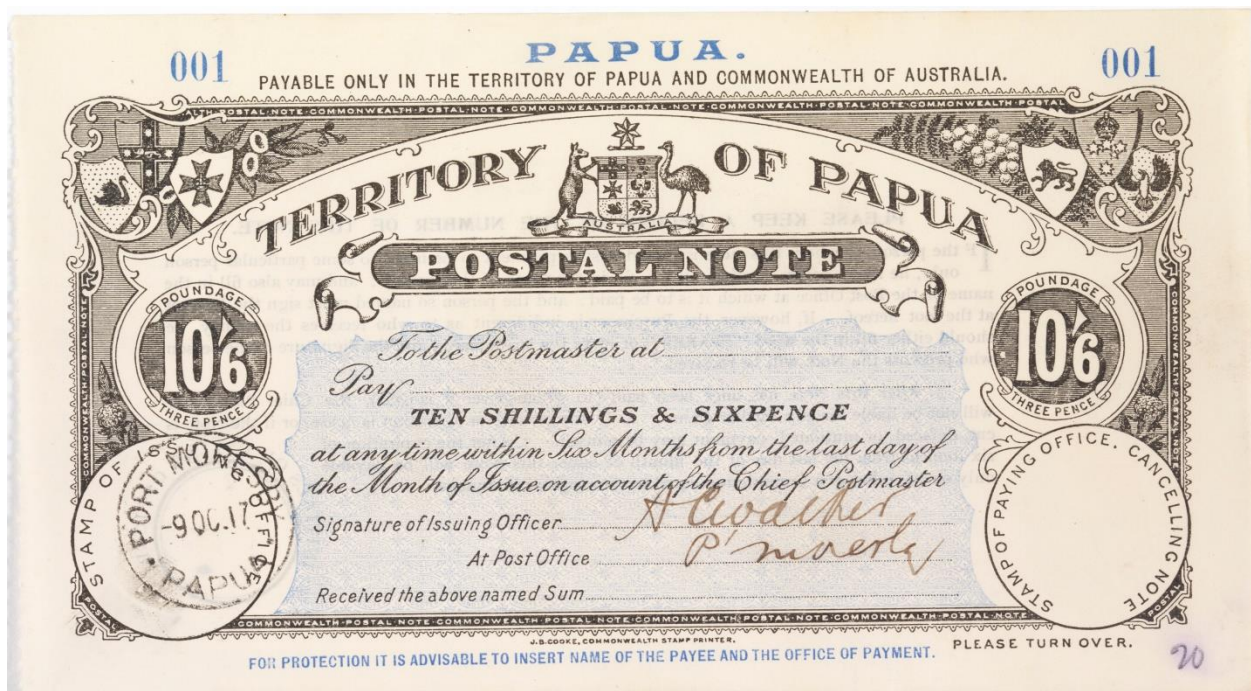 PAPUA.
001 001
PAYABLE ONLY IN THE TERRITORY OF PAPUA AND COMMONWEALTH OF AUSTRALIA.
POSTAL·NOTE·COMMONWEALTH·POSTAL·NOTE·COMMONWEALTH·POSTAL·NOTE·COMMONWEALTH·POSTAL
TERRITORY OF PAPUA
AUSTRALIA
POSTAL NOTE
POUNDAGE
10/6
THREE PENCE
POUNDAGE
10/6
THREE PENCE
To the Postmaster at
Pay
TEN SHILLINGS & SIXPENCE
at any time within Six Months from the last day of
the Month of Issue, on account of the Chief Postmaster
Signature of Issuing Officer
At Post Office
Received the above named Sum
STAMP OF ISSUING OFFICE
PORT MORESBY
-9 OC.17
PAPUA
STAMP OF PAYING OFFICE. CANCELLING NOTE
COMMONWEALTH·POSTAL·NOTE·COMMONWEALTH·POSTAL·NOTE·COMMONWEALTH·POSTAL·NOTE
J.B.COOKE, COMMONWEALTH STAMP PRINTER.
PLEASE TURN OVER.
FOR PROTECTION IT IS ADVISABLE TO INSERT NAME OF THE PAYEE AND THE OFFICE OF PAYMENT.
20